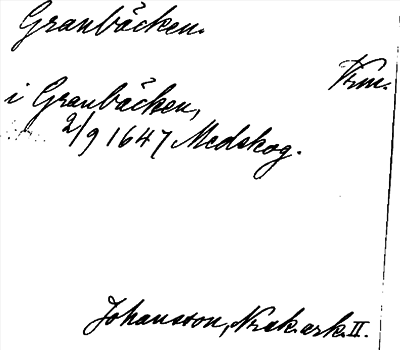 Granbäcken.
Vrm.
i Granbäcken,
2/9 1647 Medskog.
Johansson, Nsk.ark. II.